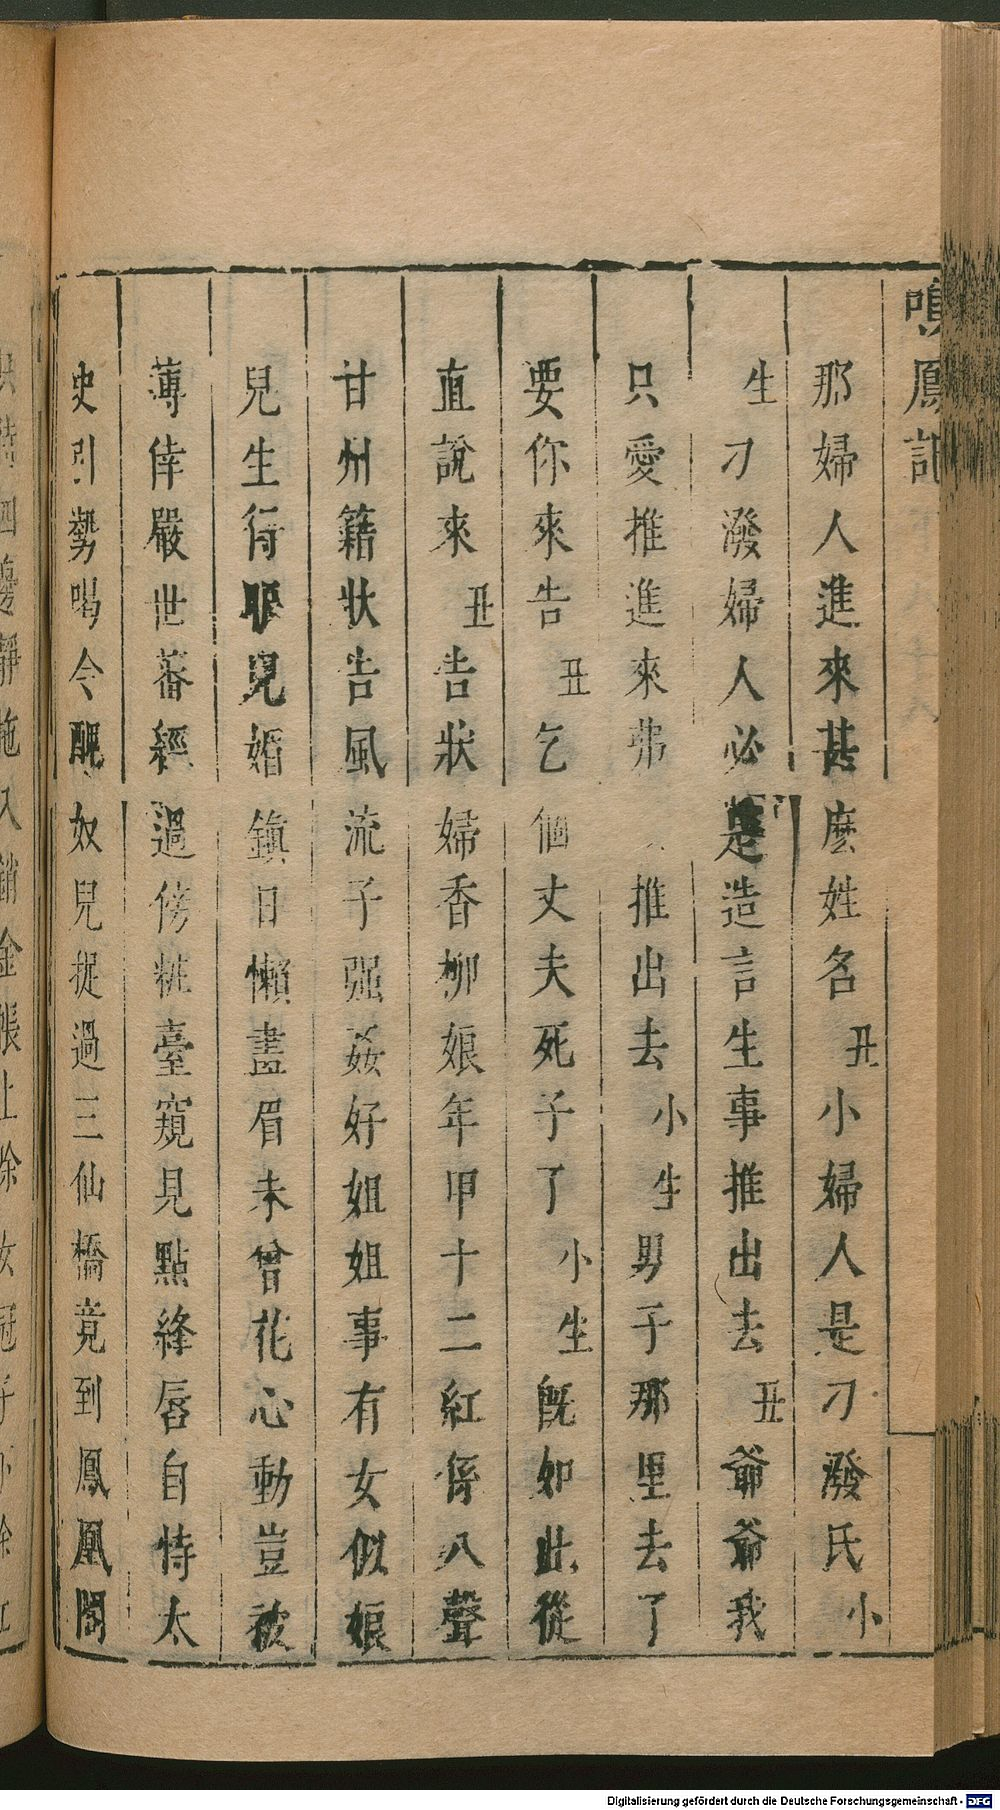 鳴鳳記
那婦人進來甚麽姓名丑小婦人是刁潑氏小
生刁潑婦人必是造言生事推出去丑爺爺我
只愛推進來弗推出去小生男子那里去了
要你來告丑乞個丈夫死子了小生旣如此從
直說來丑告狀婦香柳娘年甲十二紅係八聲
甘州籍狀告風流子强姦好姐姐事有女似娘
兒生得耶兒婚鎮日懶畫眉未曾花心動豈被
薄倖嚴世蕃經過傍粧臺窺見點絳唇自恃太
史引勢喝令醜奴兒捉過三仙橋竟到鳳凰閣
Digitalisierung gefördert durch die Deutsche Forschungsgemeinschaft - DFG